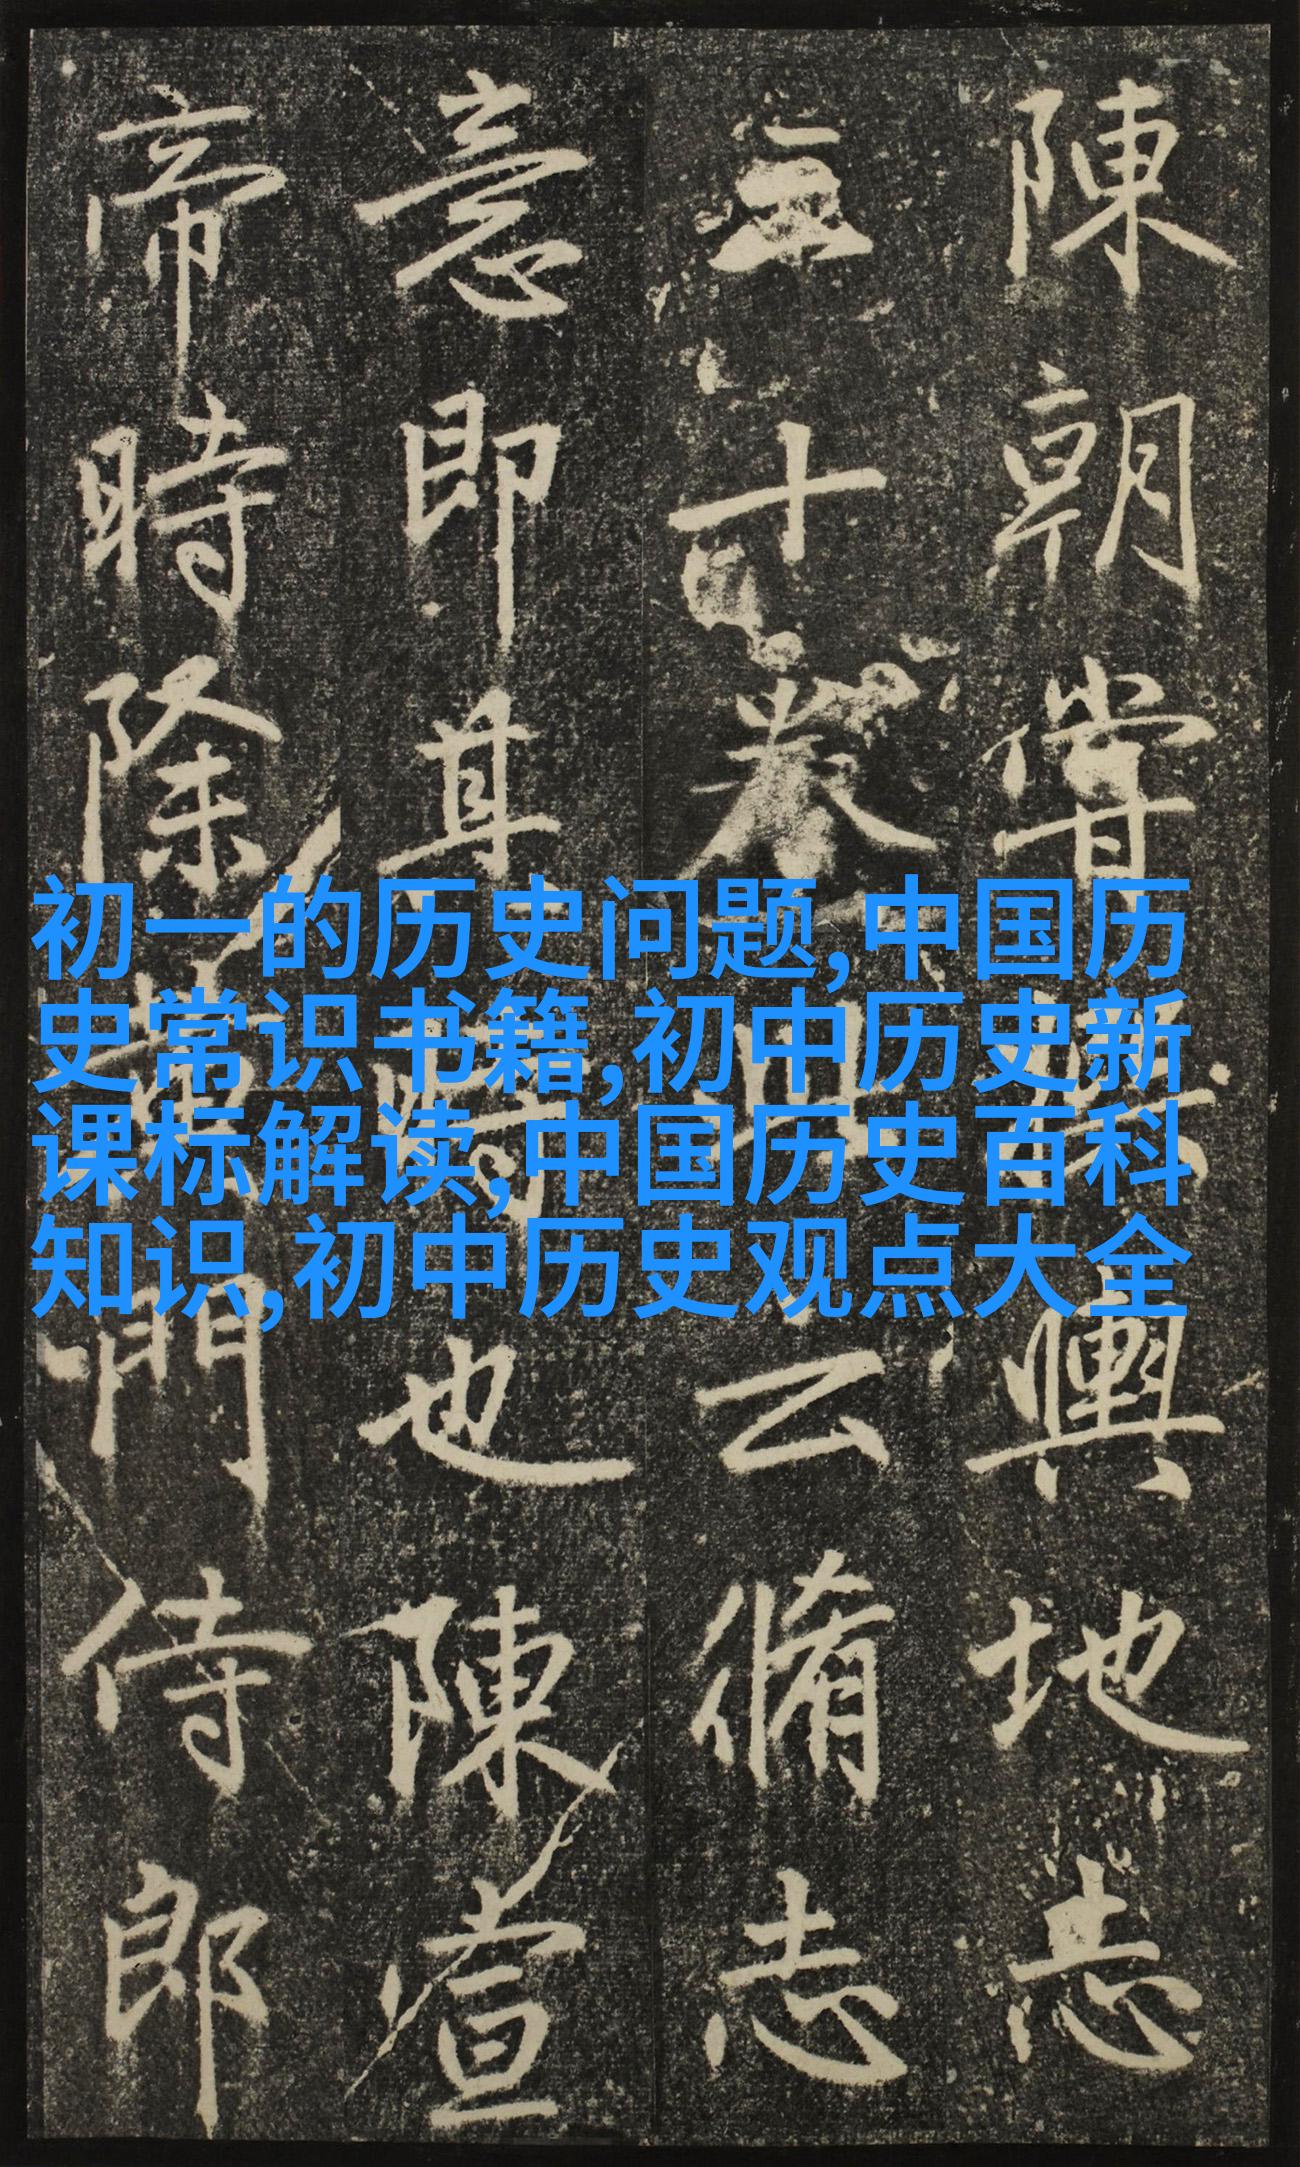 陳朝嘗輿地志
十卷此云脩志
意即其時也陳宣
帝時除黃門侍郎
初一的历史问题,中国历
史常识书籍,初中历史新
课标解读,中国历史百科
知识,初中历史观点大全